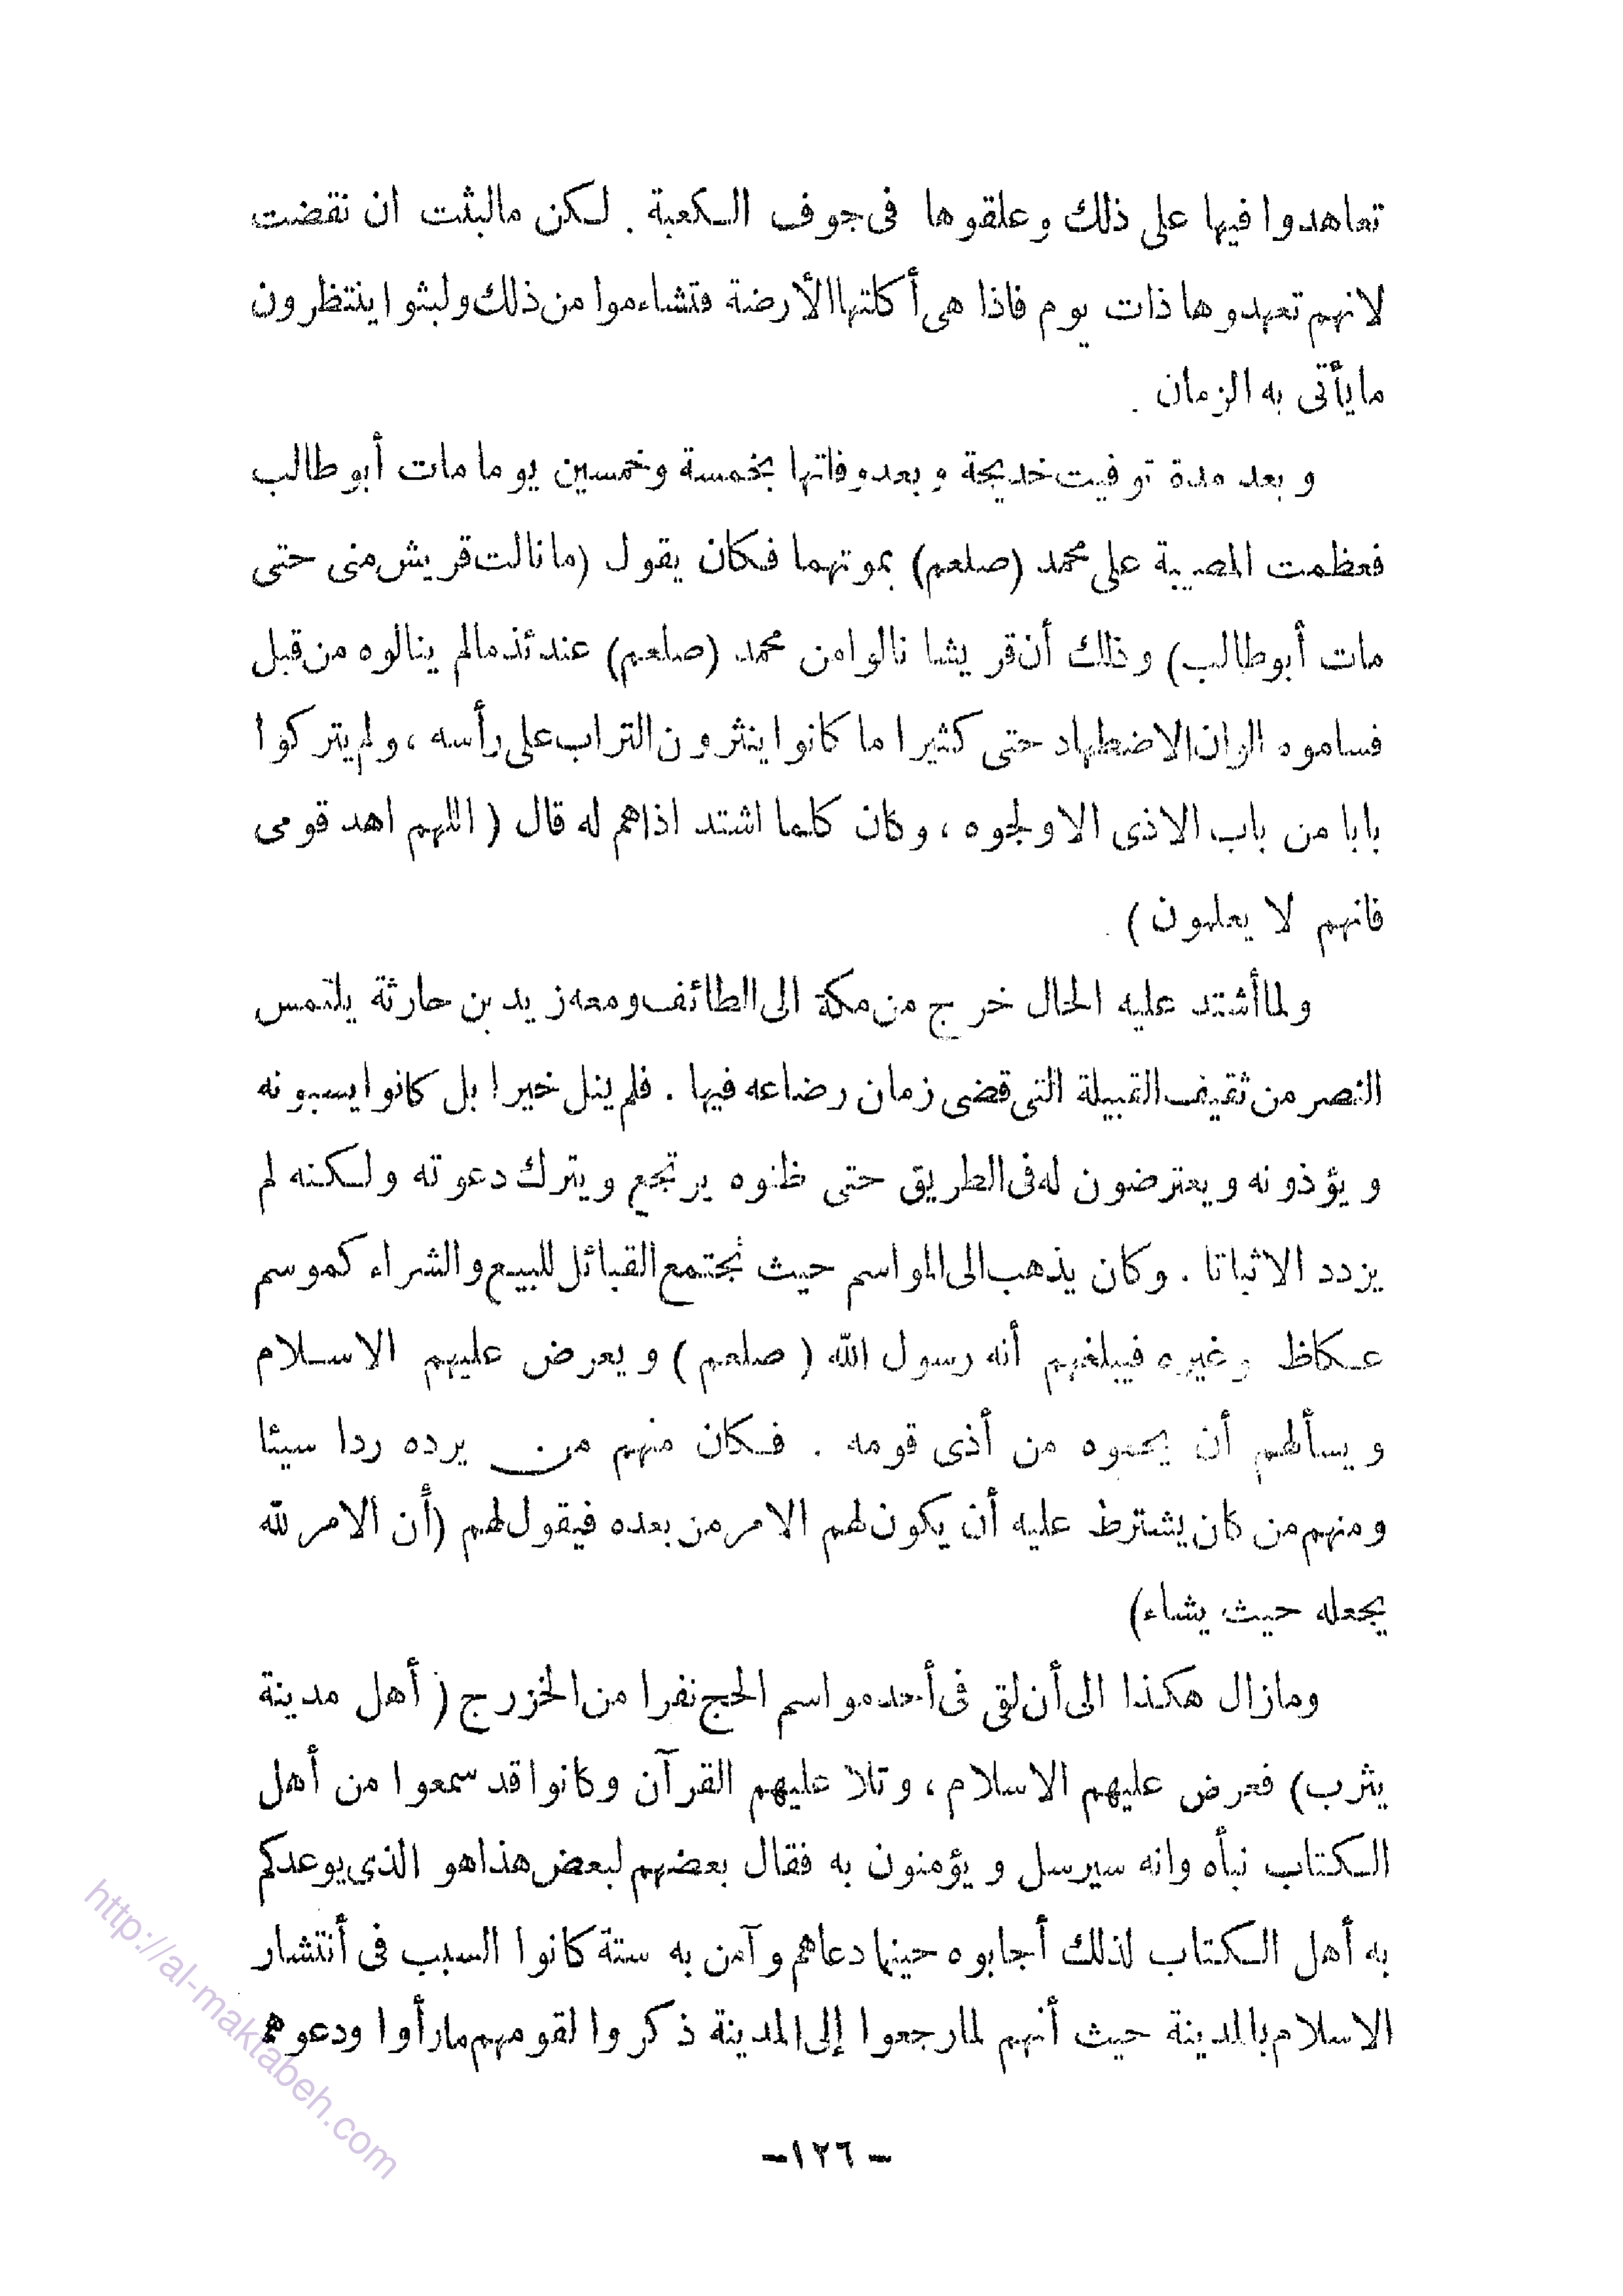 تعاهدوا فيها على ذلك وعلقوها فى جوف الكعبة . لكن مالبثت ان نقضت
لانهم تعهدوها ذات يوم فاذا هى أكلتها الأرضة فتشاءموا من ذلك ولبثوا ينتظرون
ما يأتى به الزمان .
و بعد مدة توفيت خديجة وبعد وفاتها بخمسة وخمسين يوما مات أبو طالب
فعظمت المصيبة على محمد (صلعم) بموتهما فكان يقول (ما نالت قريش منى حتى
مات أبو طالب) وذلك أن قريشا نالوا من محمد (صلعم) عندئذ مالم ينالوه من قبل
فساموه الوان الاضطهاد حتى كثيرا ما كانوا ينثرون التراب على رأسه ، ولم يتركوا
بابا من باب الاذى الا ولجوه ، وكان كلما اشتد اذاهم له قال ( اللهم اهد قومى
فانهم لا يعلمون ) .
ولما أشتد عليه الحال خرج من مكة الى الطائف ومعه زيد بن حارثة يلتمس
النصر من ثقيف القبيلة التى قضى زمان رضاعه فيها . فلم ينل خيرا بل كانوا يسبونه
و يؤذونه و يعترضون له فى الطريق حتى ظنوه يرتجع ويترك دعوته ولكنه لم
يزدد الا ثباتا . وكان يذهب الى المواسم حيث تجتمع القبائل للبيع والشراء كموسم
عكاظ وغيره فيبلغهم أنه رسول الله ( صلعم ) ويعرض عليهم الاسلام
و يسألهم أن يحموه من أذى قومه . فكان منهم من يرده ردا سيئا
ومنهم من كان يشترط عليه أن يكون لهم الامر من بعده فيقول لهم (أن الامر لله
يجعله حيث يشاء)
ومازال هكذا الى أن لقى فى أحد مواسم الحج نفرا من الخزرج ( أهل مدينة
يثرب) فعرض عليهم الاسلام ، وتلا عليهم القرآن وكانوا قد سمعوا من أهل
الكتاب نبأه وانه سيرسل و يؤمنون به فقال بعضهم لبعض هذا هو الذى يوعدكم
به أهل الكتاب لذلك أجابوه حينما دعاهم وآمن به ستة كانوا السبب فى أنتشار
الاسلام بالمدينة حيث أنهم لما رجعوا إلى المدينة ذكروا لقومهم مارأوا ودعوهم
-١٢٦-
http://al-maktabeh.com